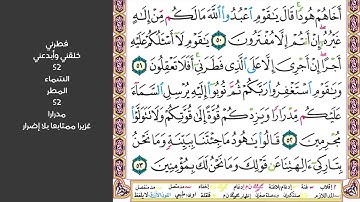 أَخَاهُمْ هُودًا قَالَ يَٰقَوْمِ ٱعْبُدُوا۟ ٱللَّهَ مَا لَكُم مِّنْ إِلَٰهٍ
غَيْرُهُۥٓ إِنْ أَنتُمْ إِلَّا مُفْتَرُونَ ٥٠ يَٰقَوْمِ لَآ أَسْـَٔلُكُمْ عَلَيْهِ
أَجْرًا إِنْ أَجْرِىَ إِلَّا عَلَى ٱلَّذِى فَطَرَنِىٓ أَفَلَا تَعْقِلُونَ ٥١
وَيَٰقَوْمِ ٱسْتَغْفِرُوا۟ رَبَّكُمْ ثُمَّ تُوبُوٓا۟ إِلَيْهِ يُرْسِلِ ٱلسَّمَآءَ
عَلَيْكُم مِّدْرَارًا وَيَزِدْكُمْ قُوَّةً إِلَىٰ قُوَّتِكُمْ وَلَا تَتَوَلَّوْا۟
مُجْرِمِينَ ٥٢ قَالُوا۟ يَٰهُودُ مَا جِئْتَنَا بِبَيِّنَةٍ وَمَا نَحْنُ
بِتَارِكِىٓ ءَالِهَتِنَا عَن قَوْلِكَ وَمَا نَحْنُ لَكَ بِمُؤْمِنِينَ ٥٣
فطرني
خلقني وأبدعني
52
السّماء
المطر
52
مدرارا
غزيرا متتابعا بلا إضرار